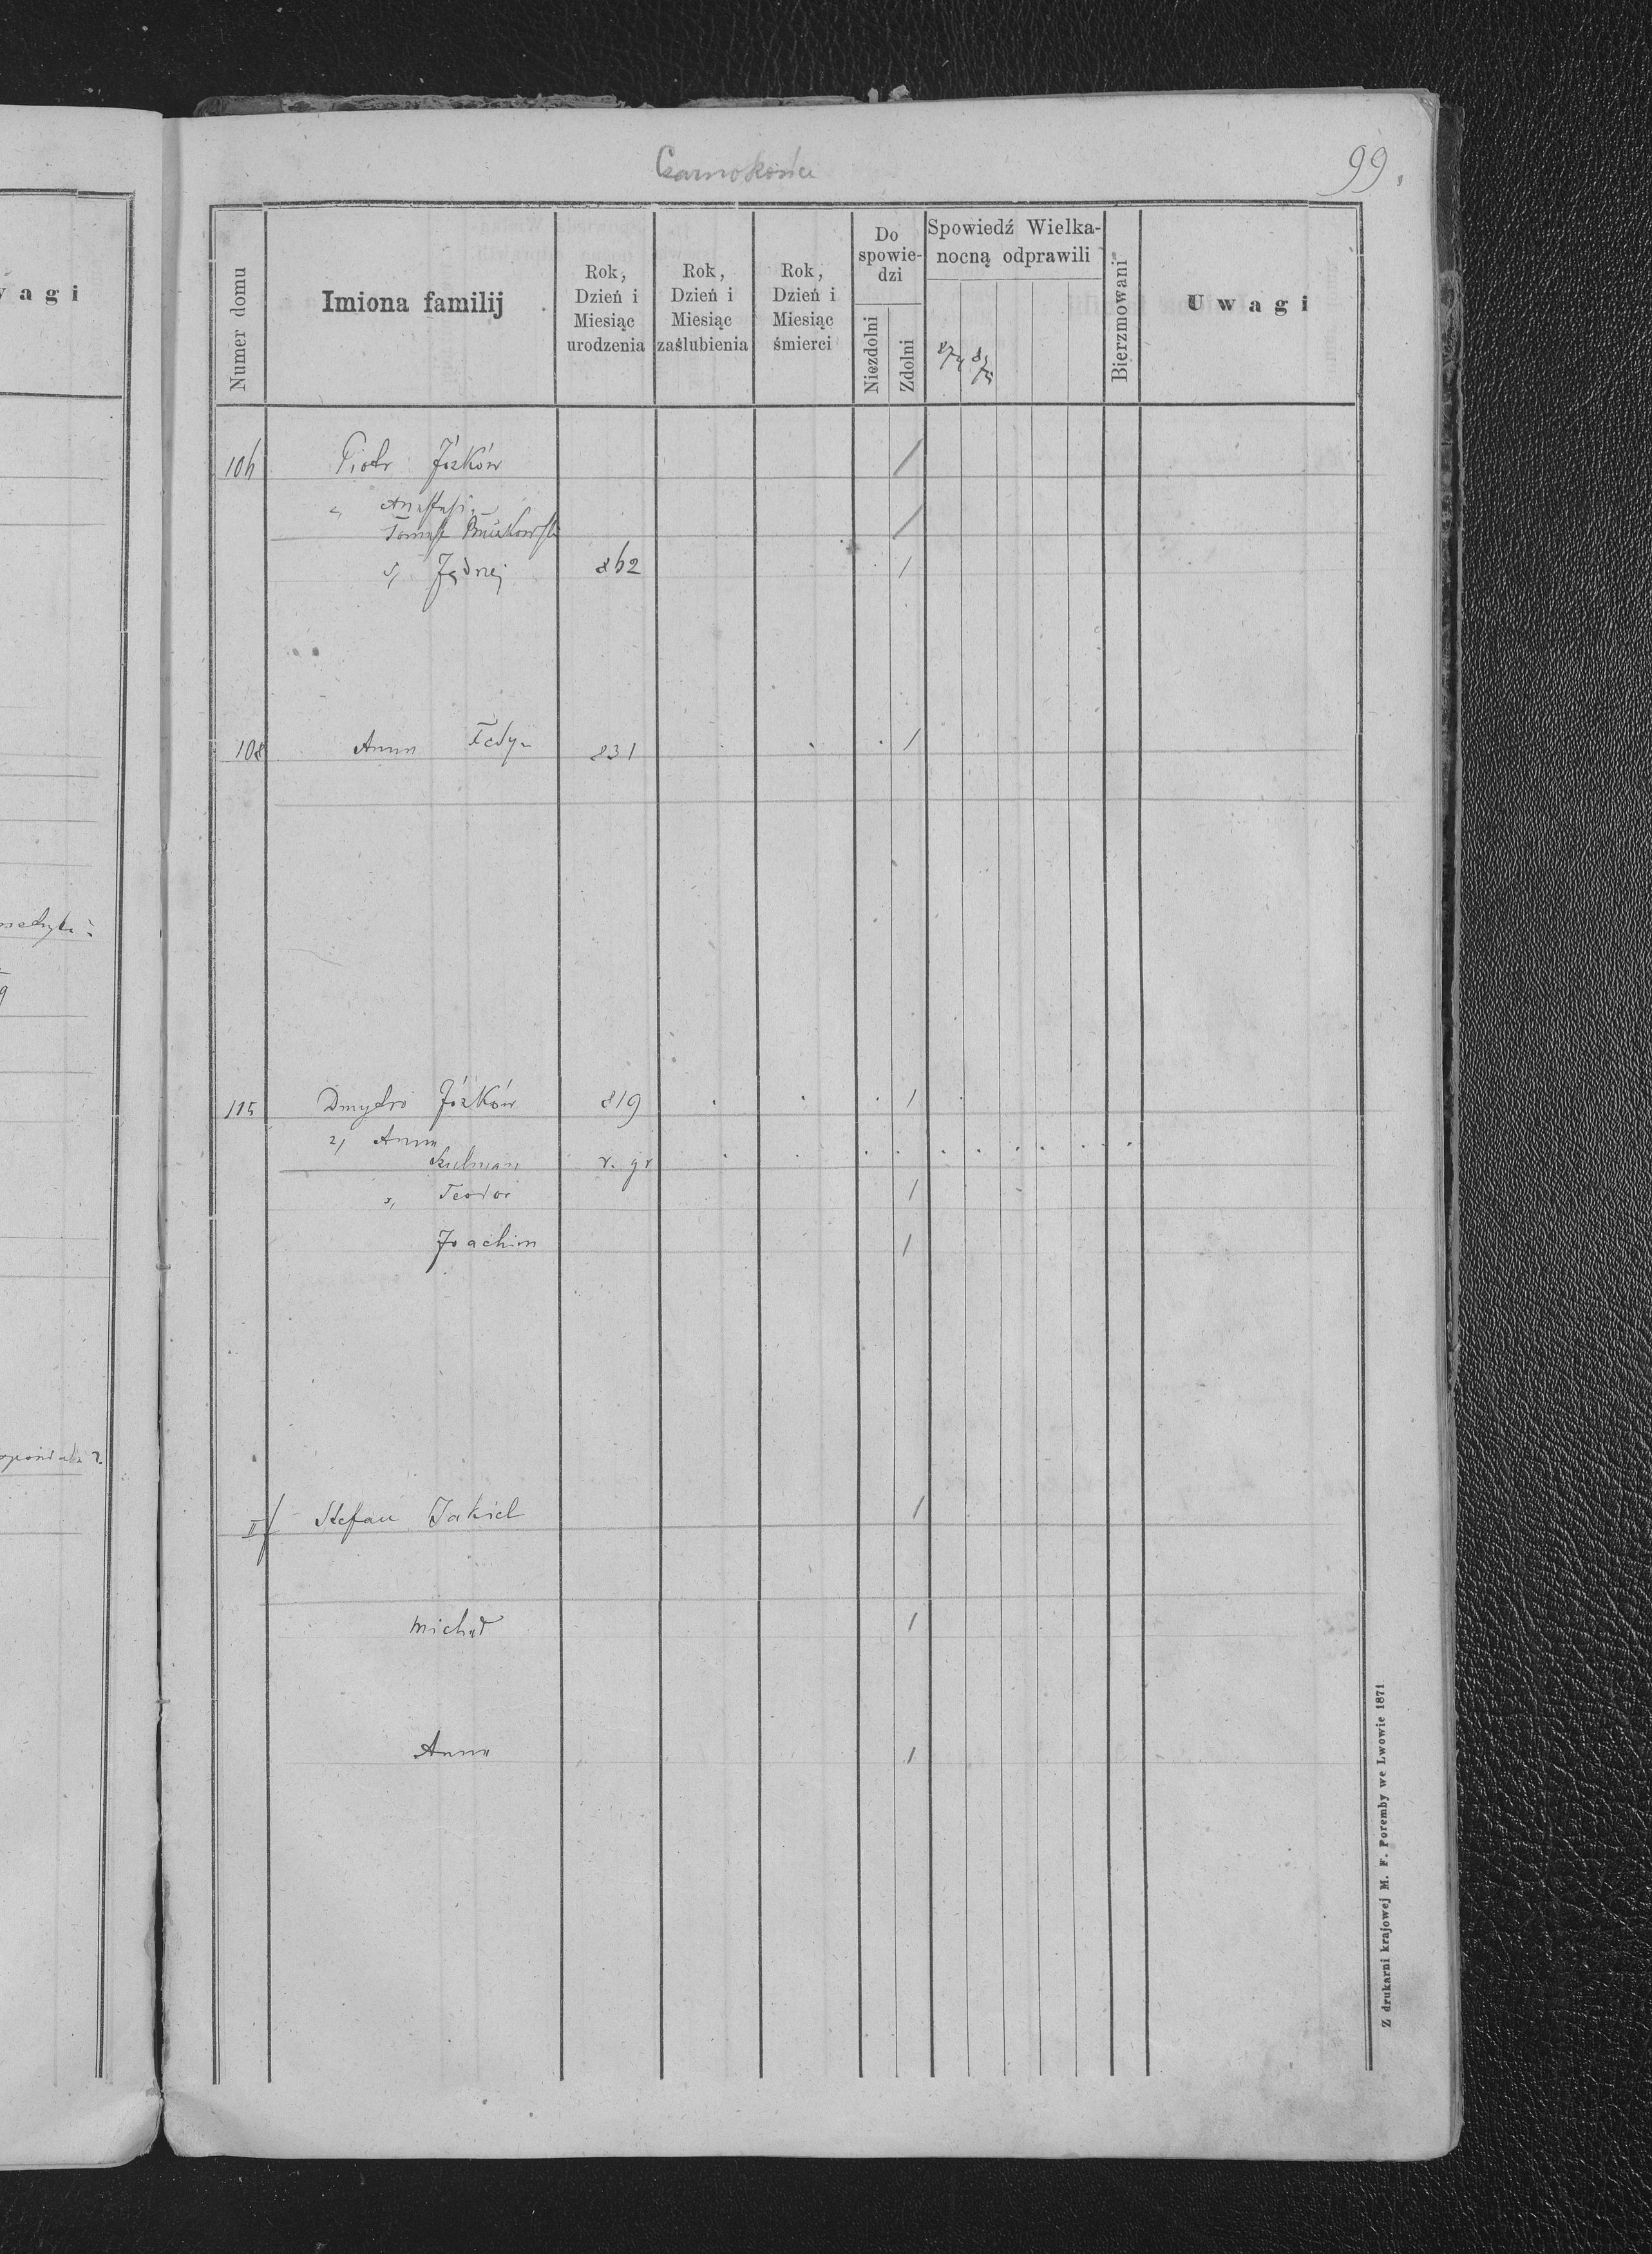 Czarnokońce
99.
Numer domu
Imiona familij
Rok, Dzień i Miesiąc urodzenia
Rok, Dzień i Miesiąc zaślubienia
Rok, Dzień i Miesiąc śmierci
Do spowiedzi
Niezdolni
Zdolni
Spowiedź Wielkanocną odprawili
874 875
Bierzmowani
Uwagi
wagi
106 Piotr Józków /
2, Anastasia
Tomasz /
3, Jędrzej 862 /
108 Anna Fedyn 831 /
115 Dmytro Józków 819 /
2, Anna
Szulman r. gr
3, Teodor /
Joachim /
II/ Stefan Jakiel /
Michał /
Anna /
Z drukarni krajowej M. F. Poremby we Lwowie 1871